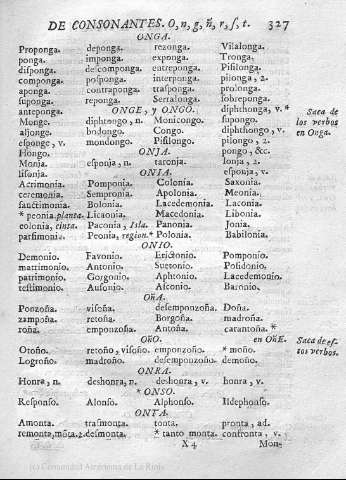 DE CONSONANTES. O, n, g, ñ, r, ſ, t. 327
ONGA.
Proponga. deponga. rezonga. Vilalonga.
ponga. imponga. exponga. Tronga.
diſponga. deſcomponga. entreponga. Piſilonga.
componga. poſponga. interponga. pilonga, 2.
aponga. contraponga. traſponga. prolonga.
ſuponga. reponga. Serralonga. ſobreponga.
anteponga. ONGE, y ONGO. diphthonga, v. *
Monge. diphtongo, n. Monicongo. ſupongo.
aljonge. bodongo. Congo. diphthongo, v.
eſponge, v. mondongo. Piſilongo. pilongo, 2.
Hongo. ONJA. pongo, &c.
Monja. eſponja, n. taronja. lonja, 2.
liſonja. ONIA. eſponja, v.
Acrimonia. Pomponia. Colonia. Saxonia.
ceremonia. Sempronia. Apolonia. Meonia.
ſanctimonia. Bolonia. Lacedemonia. Laconia.
* peonia planta. Licaonia. Macedonia. Libonia.
colonia, cinta. Paconia, Isla. Panonia. Jonia.
parſimonia. Peonia, region. * Polonia. Babilonia.
ONIO.
Demonio. Favonio. Erictonio. Pomponio.
matrimonio. Antonio. Suetonio. Poſidonio.
patrimonio. Gorgonio. Aphtonio. Lacedemonio.
teſtimonio. Auſonio. Alconio. Baronio.
OÑA.
Ponzoña. viſoña. deſemponzoña. Doña.
zampoña. retoña. Borgoña. madroña.
roña. emponzoña. Antoña. carantoña. *
OÑO. en OÑE.
Otoño. retoño, viſoño. emponzoño. * moño.
Logroño. madroño. deſemponzoño. demoño.
ONRA.
Honra, n. deshonra, n. deshonra, v. honra, v.
* ONSO.
Reſponſo. Alonſo. Alphonſo. Ildephonſo.
ONTA.
Amonta. traſmonta. tonta. pronta, ad.
remonta, 2. desmonta. * tanto monta. confronta, v.
X 4 Mon-
Saca de
los verbos
en Onga.
Saca de eſ-
tos verbos.
(c) Comunidad Autónoma de La Rioja